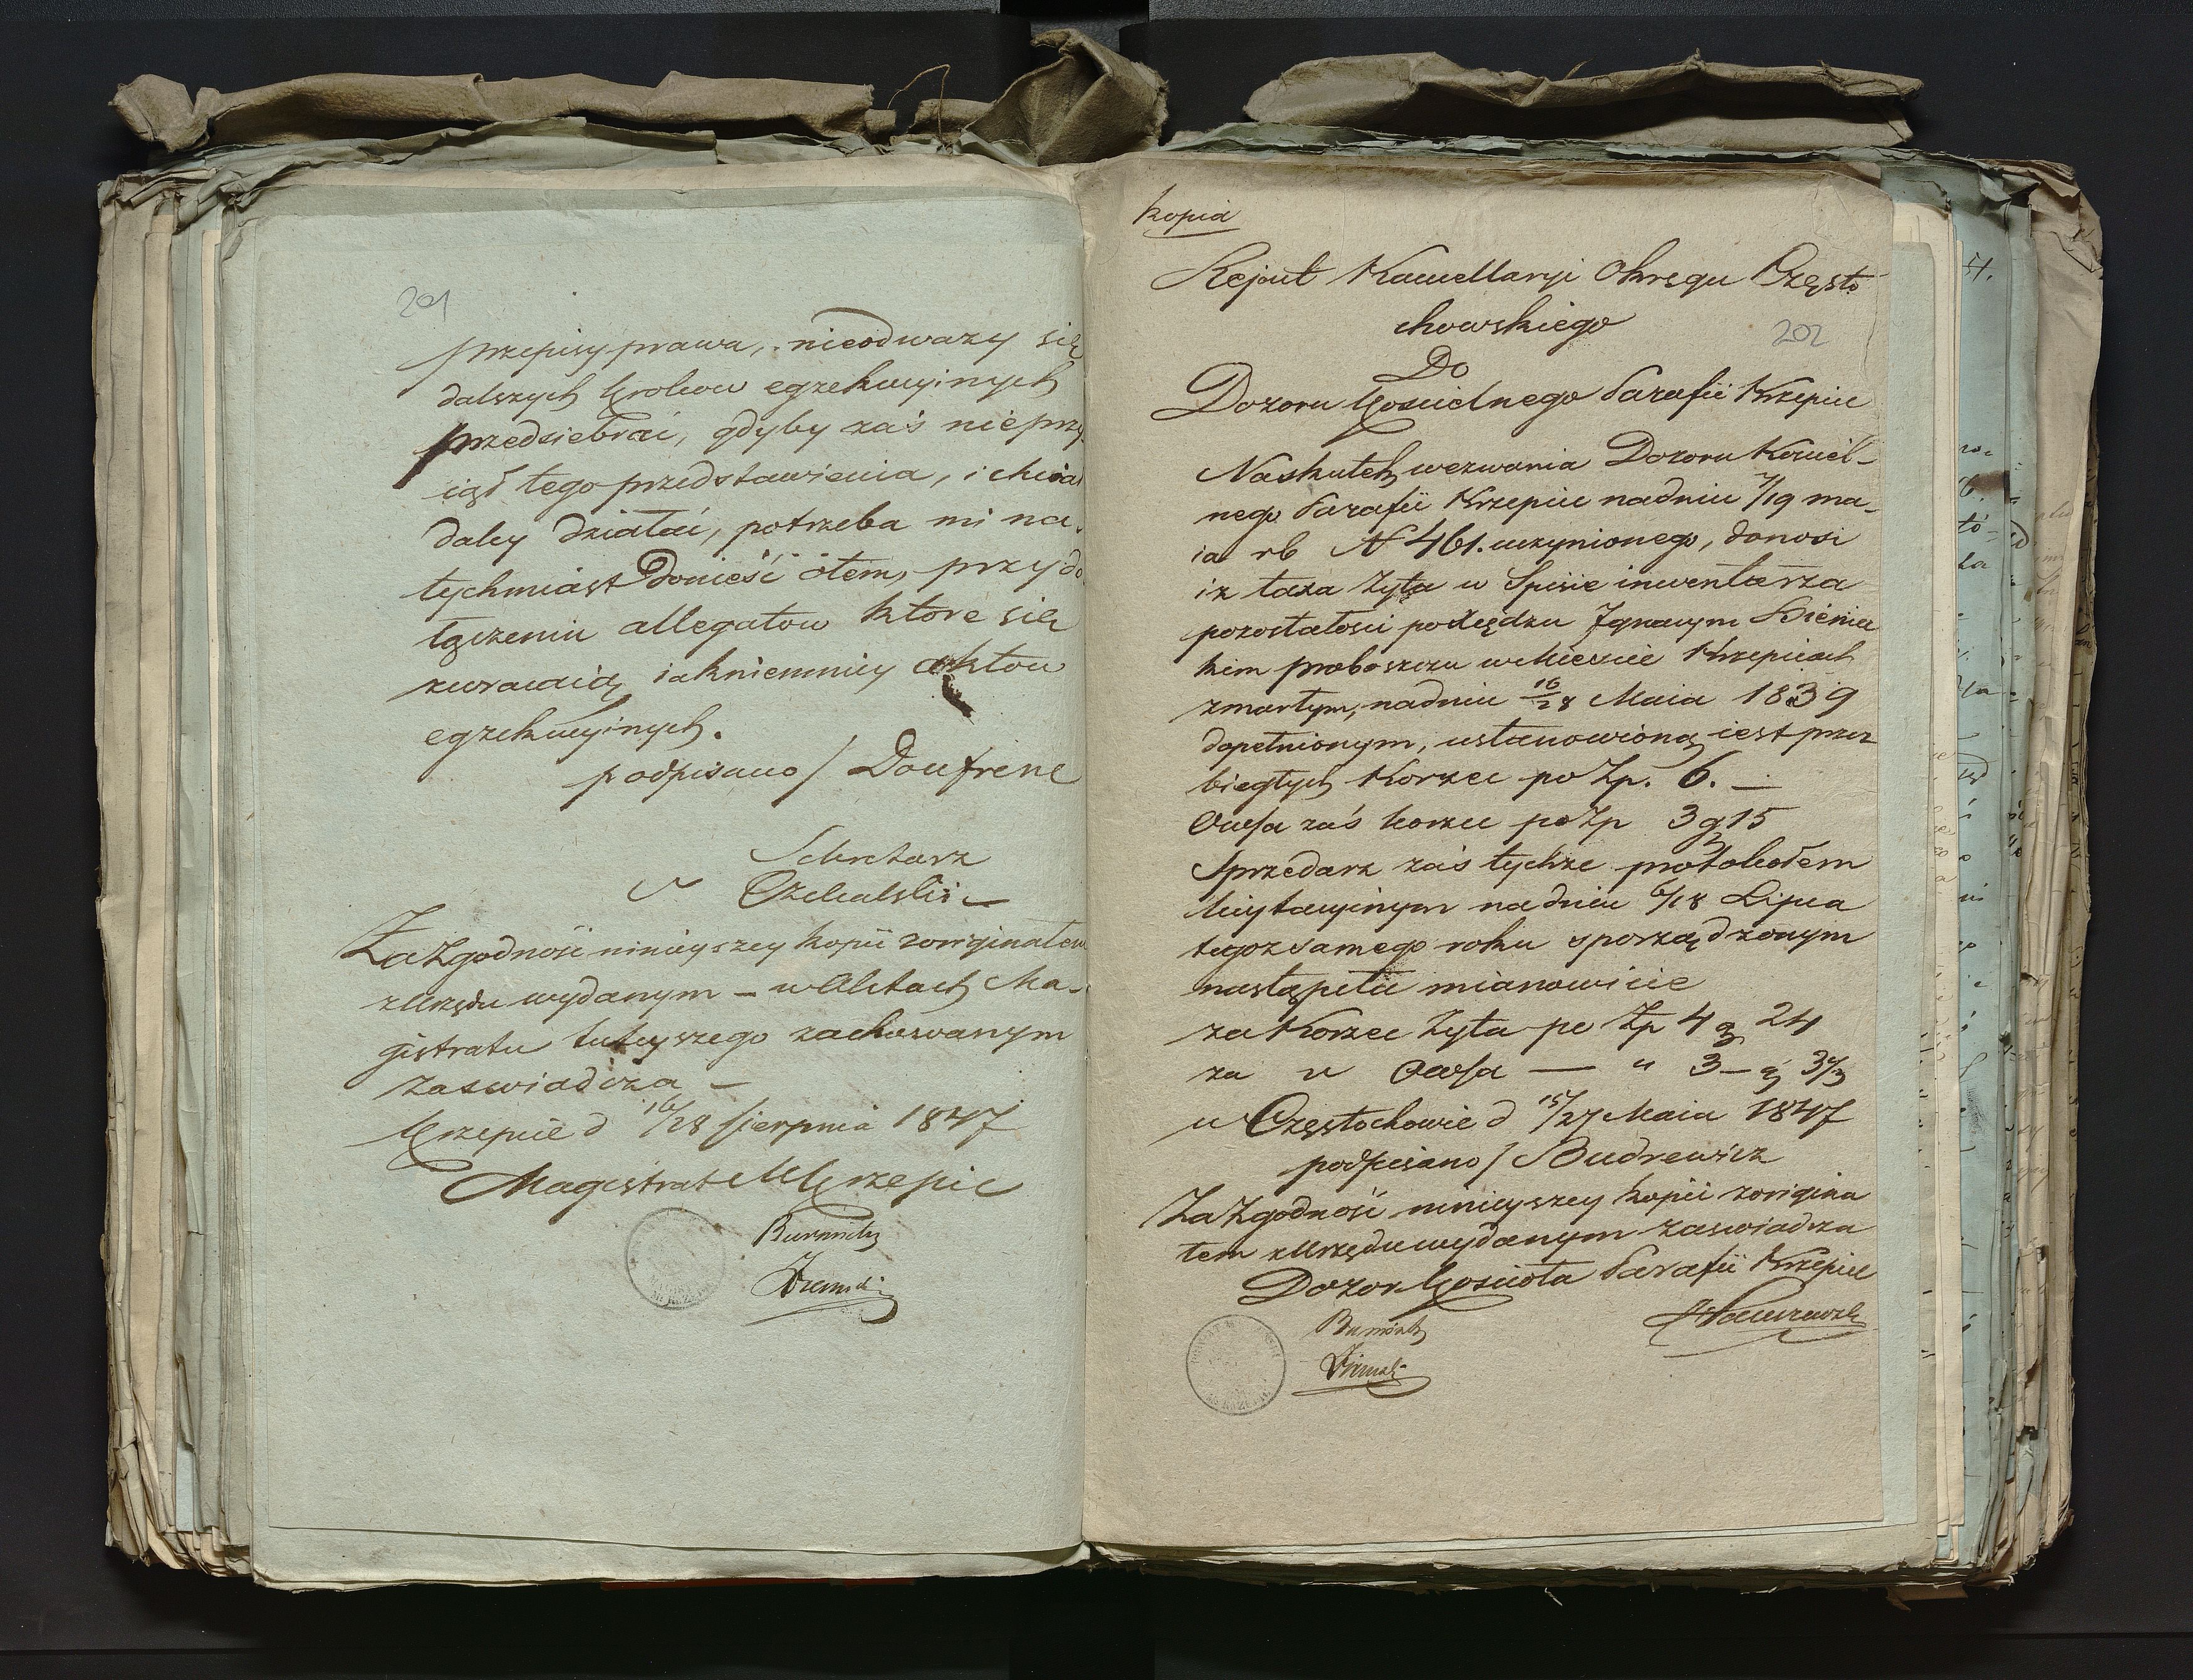 201
przepisy prawa, nieodwazy się
dalszych kroków egzekucyinych
przedsiebrać, gdyby zaś nieprzy-
iął tego przedstawienia, i chciał
daley działać, potrzeba mi na-
tychmiast donieść otem, przy do
łączeniu allegatow które się
zwracaią iakniemniey aktow
egzekucyinych.
podpisano / Doufrene
Sekretarz
Za Zgodność ninieyszey kopii zoriginałem
z Urzędu wydanym – w Aktach Ma-
gistratu tuteyszego zachowanym
zaswiadcza –
Krzepice d 16/28 Sierpnia 1847
Magistrat M Krzepic
kopia
Rejent Kancellaryi Okręgu Często
chowskiego
202
Do
Dozoru Koscielnego Parafii Krzepice
Naskutek wezwania Dozoru Kosciel-
nego Parafii Krzepice nadniu 7/19 ma-
ia rb N 461. uczynionego, donosi
iz taxa Żyta w Spisie inwentarza
pozostałosci poxiędzu Ignacym Bienie
kim proboszczu wMiescie Krzepicach
zmarłym, nadniu 16/28 Maia 1839
dopełnionym, ustanowioną iest przez
biegłych Korzec po Zp. 6. —
Owsa zaś korzec po Zp 3 g 15
Sprzedarz zaś tychże protokołem
licytacyinym nadniu 6/18 Lipca
tegoz samego roku sporządzonym
nastąpiła mianowicie
za Korzec Żyta po Zp 4 g 24
za " Owsa — " 3 – g 3 1/3
w Częstochowie d 15/27 Maia 1847
podpisano / Budrewicz
Za Zgodność ninieyszey kopii zorigina
łem z Urzędu wydanym zaswiadcza
Dozor Kosciola Parafii Krzepice